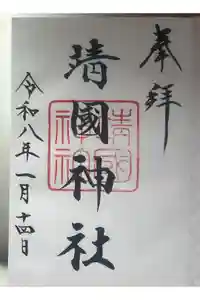 奉拝
靖國神社
令和八年一月十四日
靖國
神社